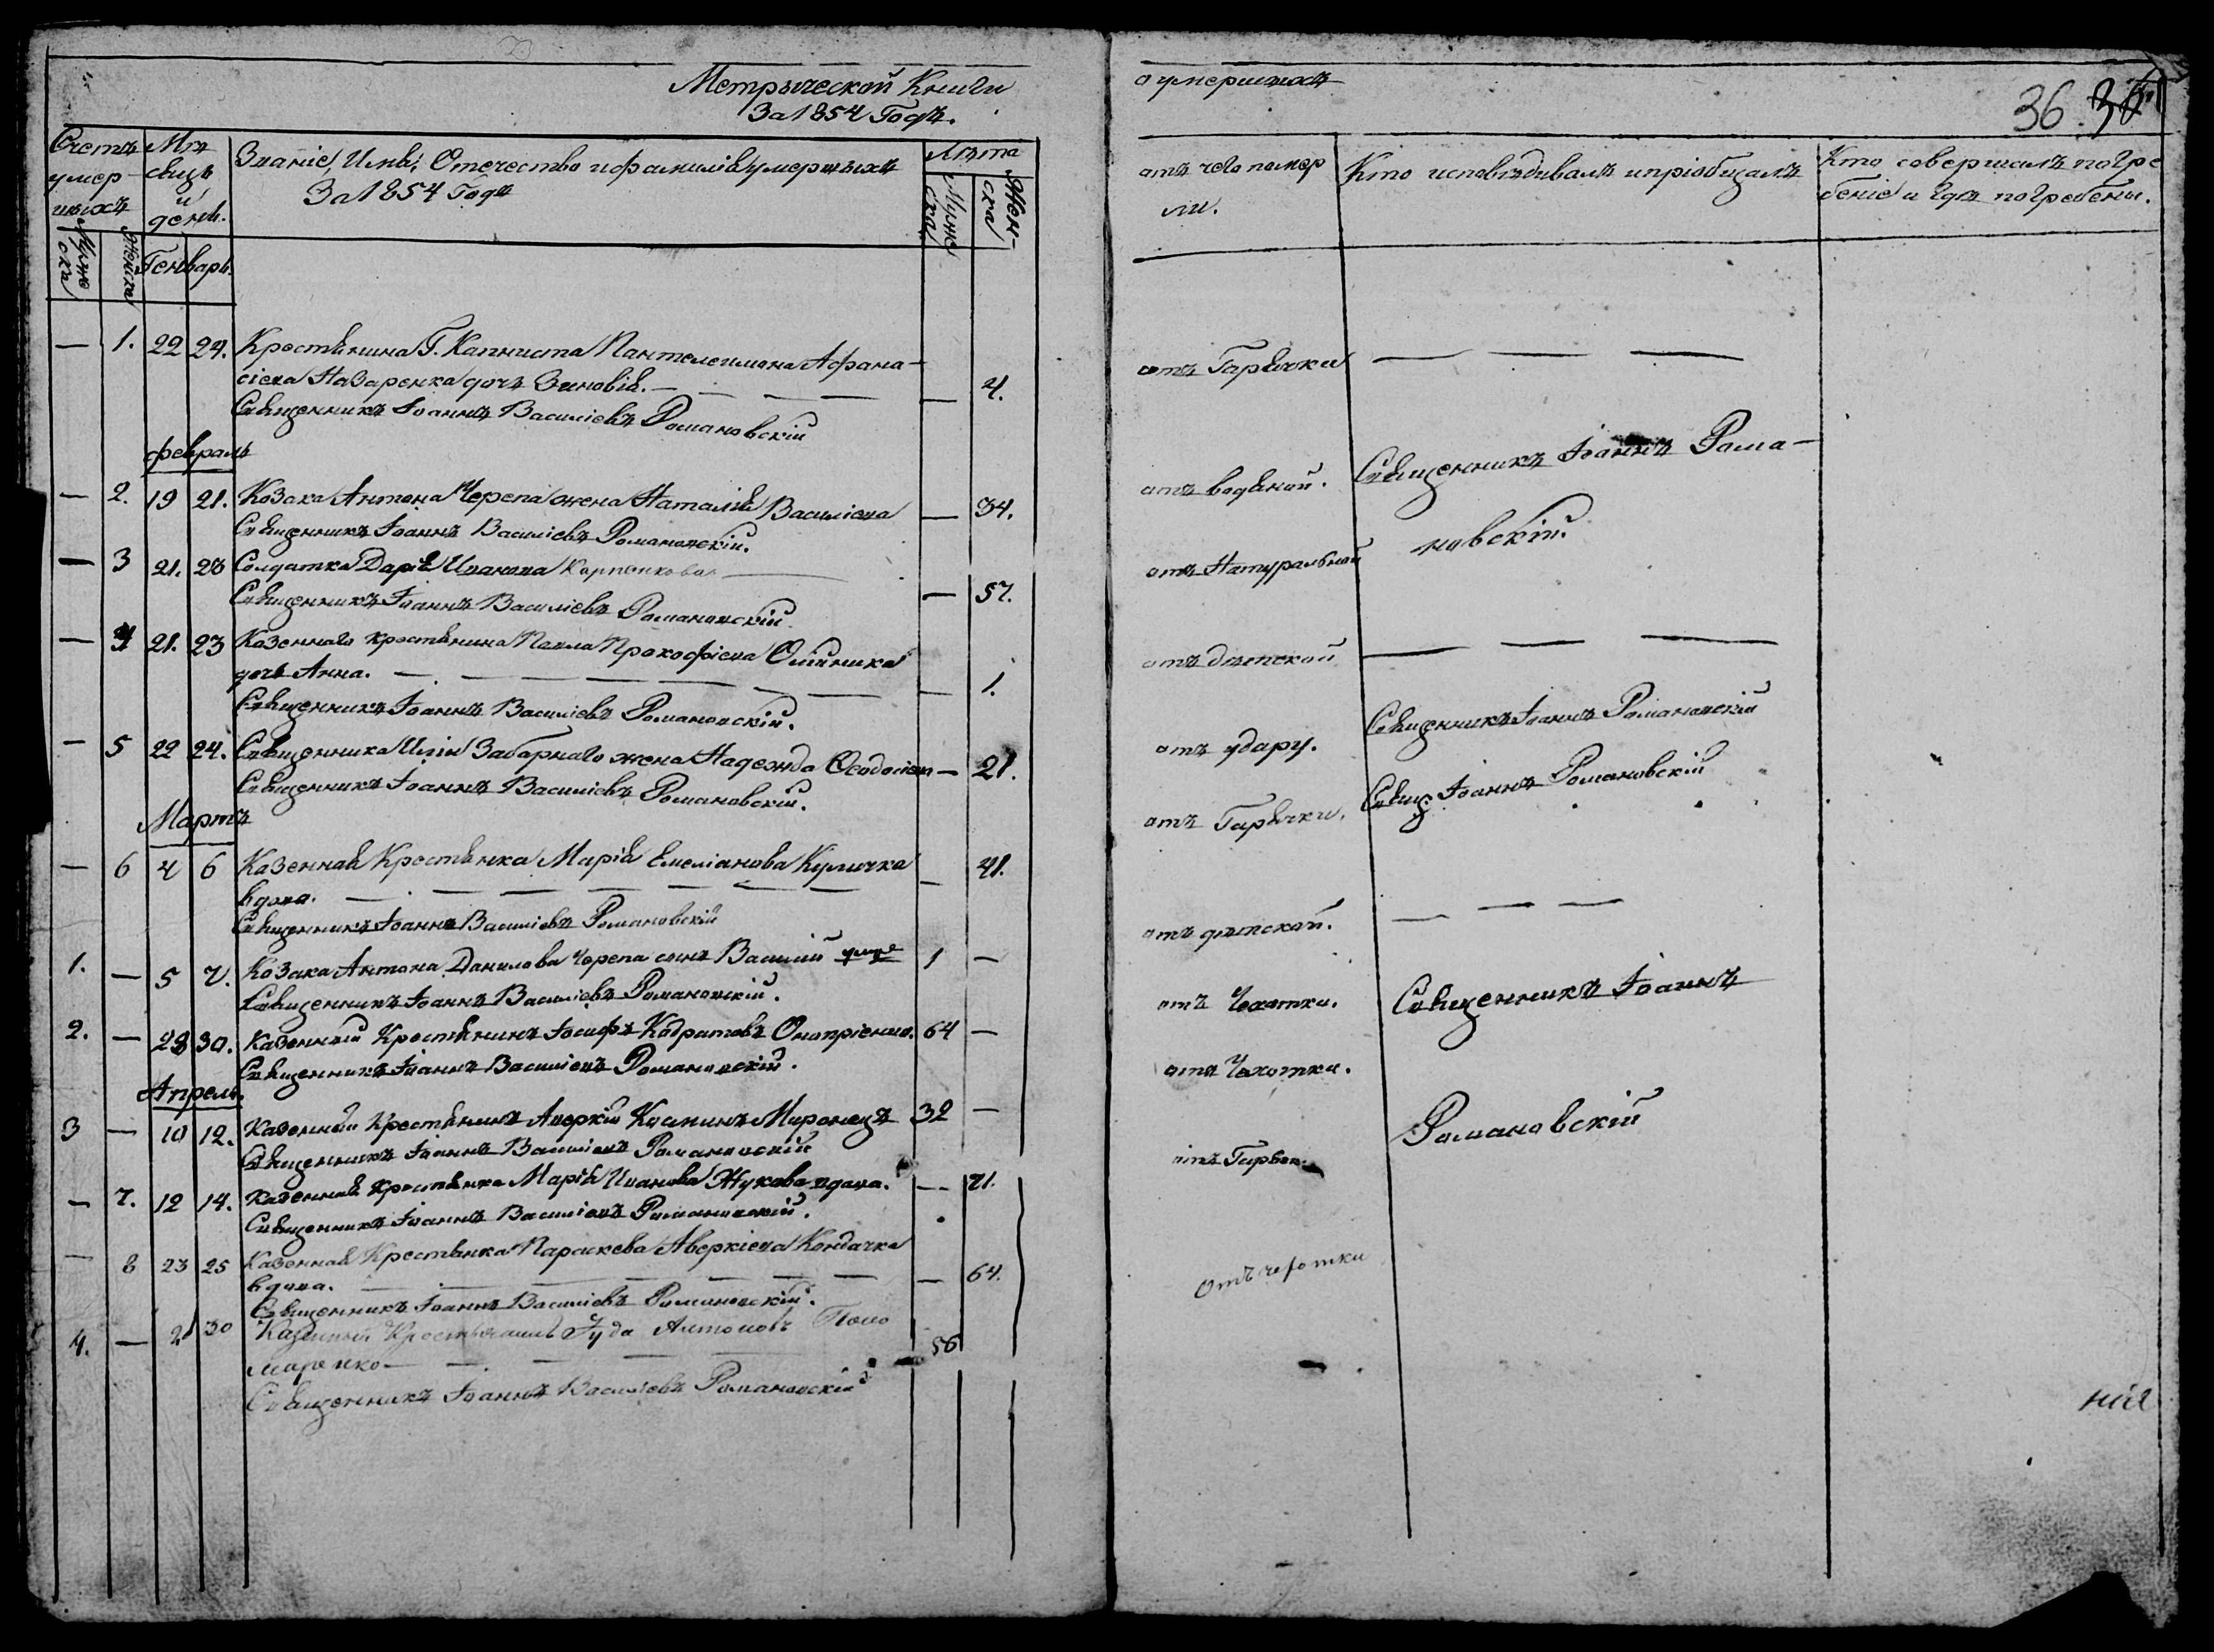 Метрической Книги
За 1854 Годъ.
Счетъ умер-шихъ
Мѣсяцъ и день.
Званіе, Имя, Отечество и фамилія умершихъ
За 1854 Годъ
Лѣта
Мужеска
Женска
Мужеска
Женска
Генварь
— 1. 22 24. Крестянина Г. Капниста Пантелеимона Афана-
сіева Назаренка дочь Зиновія. — 4.
Священникъ Іоаннъ Василіевъ Романовскій
февраль
— 2. 19 21. Козака Антона Черепа жена Наталія Василіева — 34.
Священникъ Іоаннъ Василіевъ Романовскій.
— 3 21. 23 Солдатка Дарія Иванова Карпенкова — 57.
Священникъ Іоаннъ Василіевъ Романовскій
— 4 21. 23 Казеннаго крестянина Павла Прокофіева Олійника
дочь Анна. — 1.
Священникъ Іоаннъ Василіевъ Романовскій.
— 5 22 24. Священника Иліи Забарнаго жена Надежда — 21.
Священникъ Іоаннъ Василіевъ Романовскій.
Мартъ
— 6 4 6 Казенная Крестянка Марія Емеліанова Куличка
вдова. — 41.
Священникъ Іоаннъ Василіевъ Романовскій
1. — 5 7. Козака Антона Данилова Черепа сынъ Василій 1 —
Священникъ Іоаннъ Василіевъ Романовскій.
2. — 28 30. Казенный Крестянинъ Іосифъ Кодратовъ Онопріенко. 64 —
Священникъ Іоаннъ Василіевъ Романовскій.
Апрель.
3 — 10 12. Казенный Крестянинъ Аверкій Косминъ Миронецъ 32 —
Священникъ Іоаннъ Василіевъ Романовскій
— 7. 12 14. Казенная Крестянка Марія Иванова Жукова вдова. — 71.
Священникъ Іоаннъ Василіевъ Романовскій.
— 8 23 25 Казенная Крестянка Параскева Аверкіева Кондачка
вдова. — 64.
Священникъ Іоаннъ Василіевъ Романовскій.
4. — 30 Казенный Крестьянинъ Іуда Антоновъ Поно
маренко — 56
Священникъ Іоаннъ Василіевъ Романовскій
о умершихъ
36.
отъ чего помер
ли.
Кто исповѣдивалъ и пріобщалъ
Кто совершалъ погре
беніе и гдѣ погребены.
отъ Гарячки — — —
отъ водяной. Священникъ Іоаннъ Рома-
отъ Натуральной новскій.
отъ дѣтской — — —
отъ удару. Священникъ Іоаннъ Романовскій
отъ Гарячки. Свящ Іоаннъ Романовскій
отъ дѣтской. — — —
отъ Чахотки. Священникъ Іоаннъ
отъ Чахотки.
Романовскій
отъ Гаряч.
отъ чехотки
нія